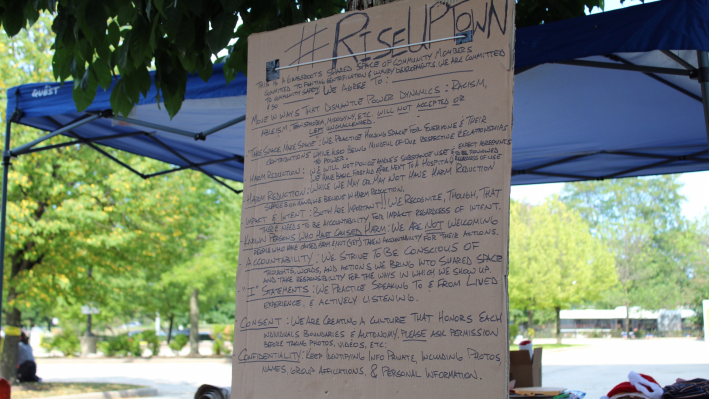 #RISEUPTOWN
THIS IS A GRASSROOTS SHARED SPACE OF COMMUNITY MEMBERS
COMMITTED TO FIGHTING GENTRIFICATION & LUXURY DEVELOPMENTS. WE ARE COMMITTED
TO COMMUNITY SAFETY. WE AGREE TO:
& SO
MOVE IN WAYS THAT DISMANTLE POWER DYNAMICS: RACISM,
ABLEISM, TRANSPHOBIA, MISOGYNY, ETC. WILL NOT ACCEPTED OR
LEFT UNCHALLENGED.
TAKE SPACE MAKE SPACE: WE PRACTICE HOLDING SPACE FOR EVERYONE & THEIR
CONTRIBUTIONS WHILE ALSO BEING MINDFUL OF OUR RESPECTIVE RELATIONSHIPS
TO POWER.
HARM REDUCTION: WE WILL NOT POLICE ANYONE'S SUBSTANCE USE & EXPECT AGREEMENTS
WE HAVE BASIC FIRST AID & ARE NEXT TO A HOSPITAL TO BE FOLLOWED
REGARDLESS OF USE
HARM REDUCTION: WHILE WE MAY OR MAY NOT HAVE HARM REDUCTION
SUPPLIES ON HAND, WE BELIEVE IN HARM REDUCTION.
IMPACT & INTENT: BOTH ARE IMPORTANT!! WE RECOGNIZE, THOUGH, THAT
THERE NEEDS TO BE ACCOUNTABILITY FOR IMPACT REGARDLESS OF INTENT.
KNOWN PERSONS WHO HAVE CAUSED HARM: WE ARE NOT WELCOMING
PEOPLE WHO HAVE CAUSED HARM & NOT (YET) TAKEN ACCOUNTABILITY FOR THEIR ACTIONS.
ACCOUNTABILITY: WE STRIVE TO BE CONSCIOUS OF
THOUGHTS, WORDS, AND ACTIONS WE BRING INTO SHARED SPACE
AND TAKE RESPONSIBILITY FOR THE WAYS IN WHICH WE SHOW UP.
"I" STATEMENTS: WE PRACTICE SPEAKING TO & FROM LIVED
EXPERIENCE, & ACTIVELY LISTENING.
CONSENT: WE ARE CREATING A CULTURE THAT HONORS EACH
INDIVIDUALS BOUNDARIES & AUTONOMY. PLEASE ASK PERMISSION
BEFORE TAKING PHOTOS, VIDEOS, ETC.
CONFIDENTIALITY: KEEP IDENTIFYING INFO PRIVATE, INCLUDING PHOTOS,
NAMES, GROUP AFFILIATIONS, & PERSONAL INFORMATION.
QUEST